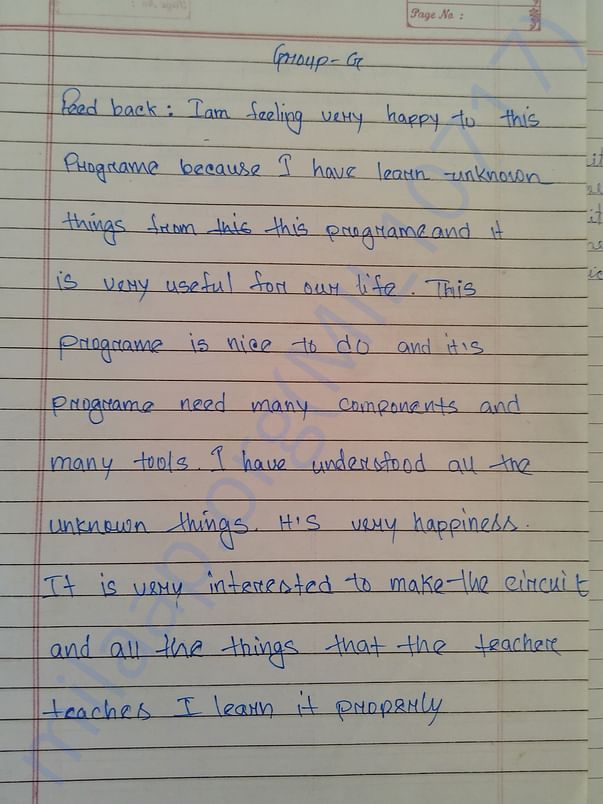 Page No :
Group-G
Feed back : I am feeling very happy to this
Programe because I have learn unknown
things from this this programe and it
is very useful for our life. This
programe is nice to do and it's
programe need many components and
many tools. I have understood all the
unknown things. It's very happiness.
It is very interested to make the circuit
and all the things that the teachere
teaches I learn it properly
milaap.org(MIL_10717)